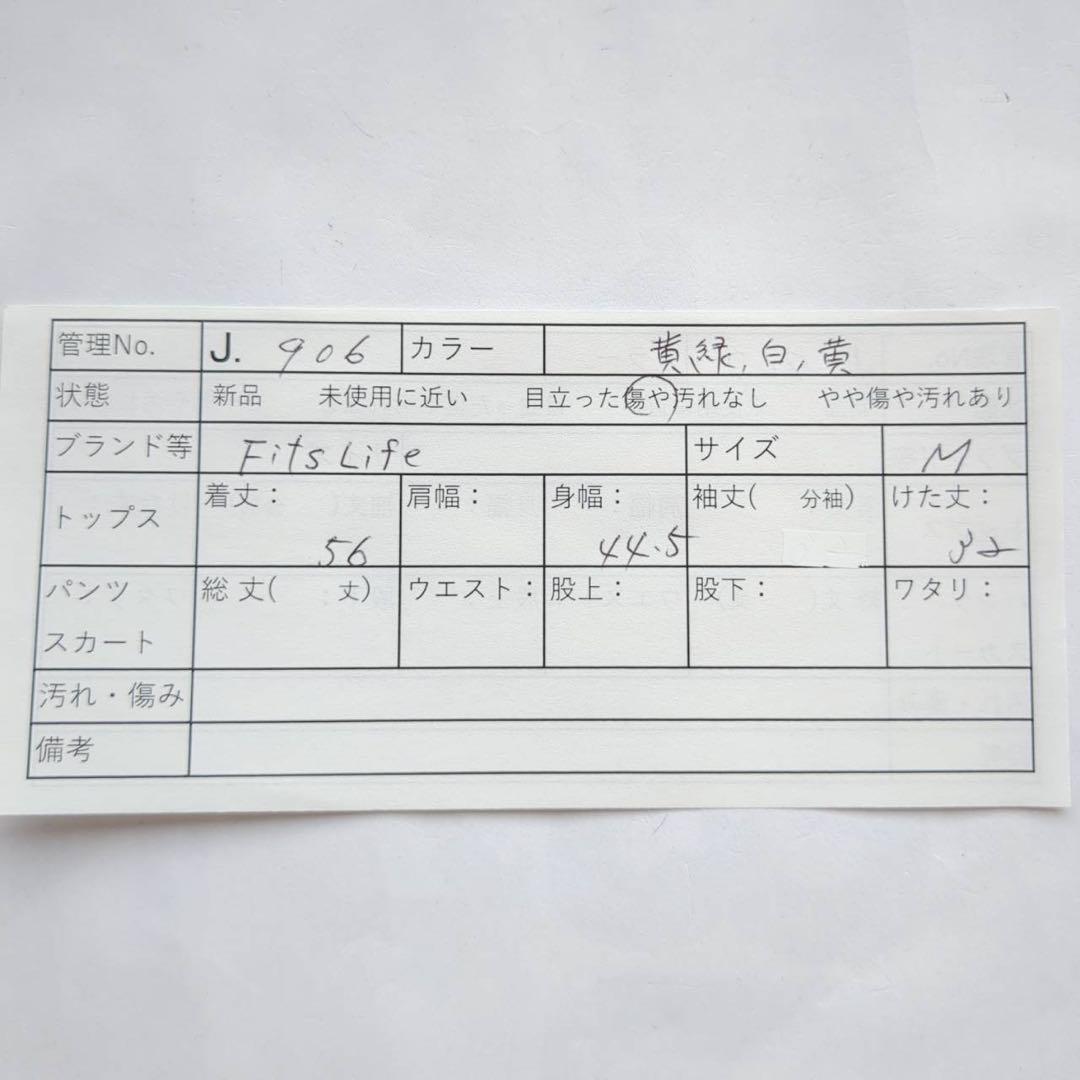 管理No. J. 906 カラー 黄緑,白,黄
状態 新品 未使用に近い 目立った傷や汚れなし やや傷や汚れあり
ブランド等 Fits Life サイズ M
トップス 着丈: 56 肩幅: 身幅: 44.5 袖丈( 分袖) けた丈: 32
パンツ 総丈( 丈) ウエスト: 股上: 股下: ワタリ:
スカート
汚れ・傷み
備考